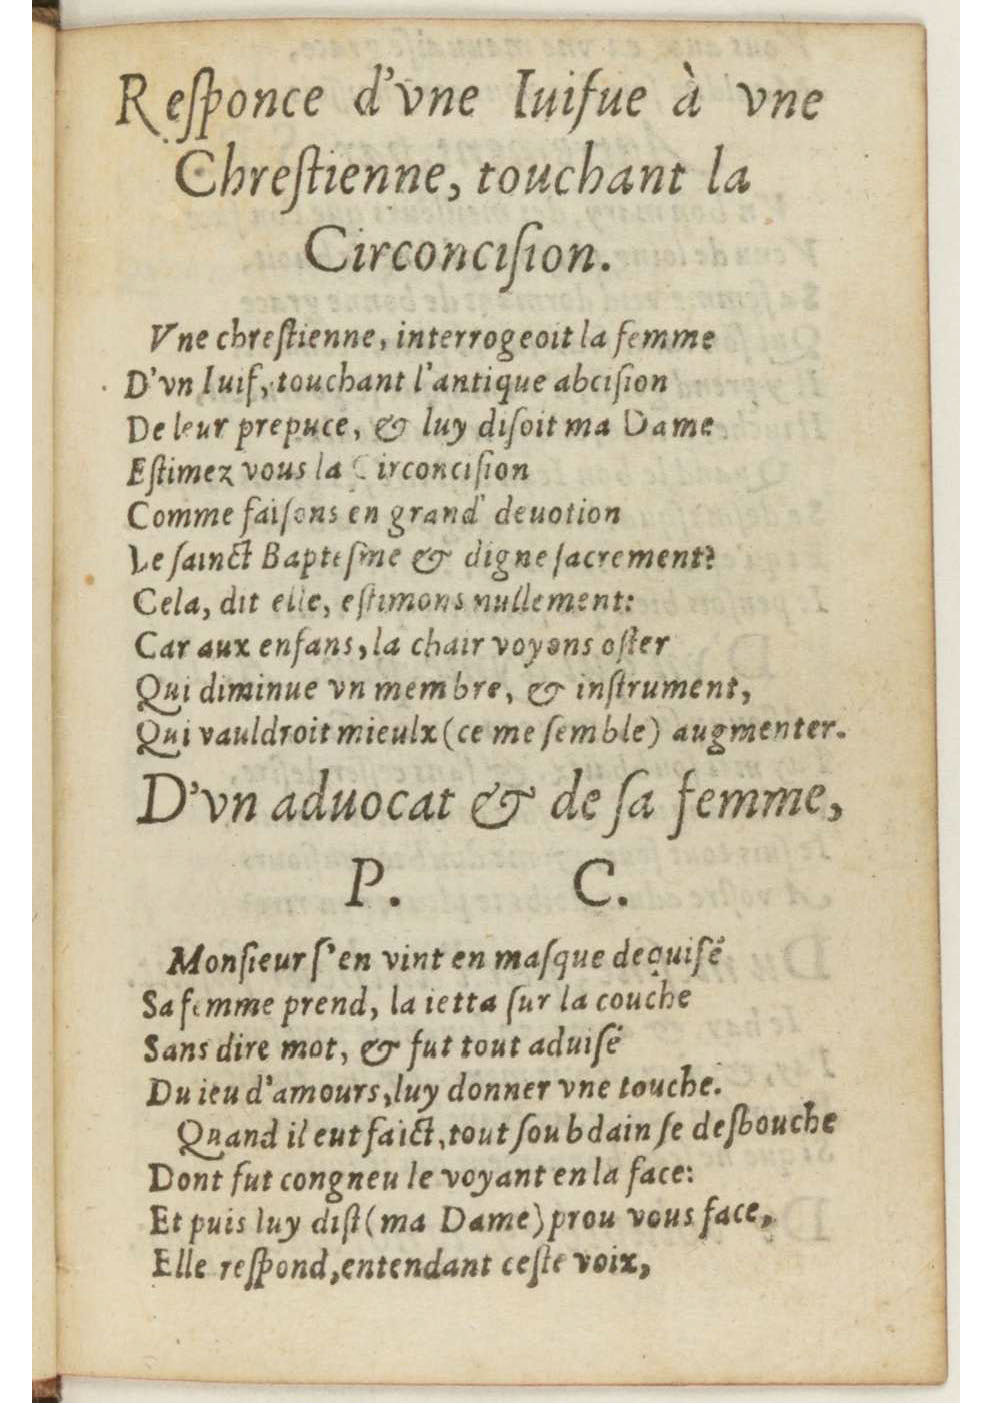 Reſponce d'vne Iuifue à vne
Chreſtienne, touchant la
Circonciſion.
Vne chreſtienne, interrogeoit la femme
D'vn Iuif, touchant l'antique abciſion
De leur prepuce, & luy diſoit ma Dame
Eſtimez vous la Circonciſion
Comme faiſons en grand' deuotion
Le ſainct Bapteſme & digne ſacrement?
Cela, dit elle, eſtimons nullement:
Car aux enfans, la chair voyons oſter
Qui diminue vn membre, & inſtrument,
Qui vauldroit mieulx (ce me ſemble) augmenter.
D'vn aduocat & de ſa femme,
P. C.
Monſieur ſ'en vint en maſque deguiſé
Sa femme prend, la ietta ſur la couche
Sans dire mot, & fut tout aduiſé
Du ieu d'amours, luy donner vne touche.
Quand il eut faict, tout ſoubdain ſe deſbouche
Dont fut congneu le voyant en la face:
Et puis luy diſt (ma Dame) prou vous face,
Elle reſpond, entendant ceſte voix,